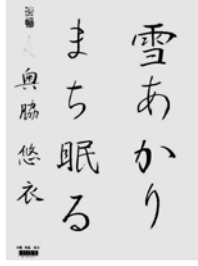 雪あかり
まち眠る
奥脇悠衣